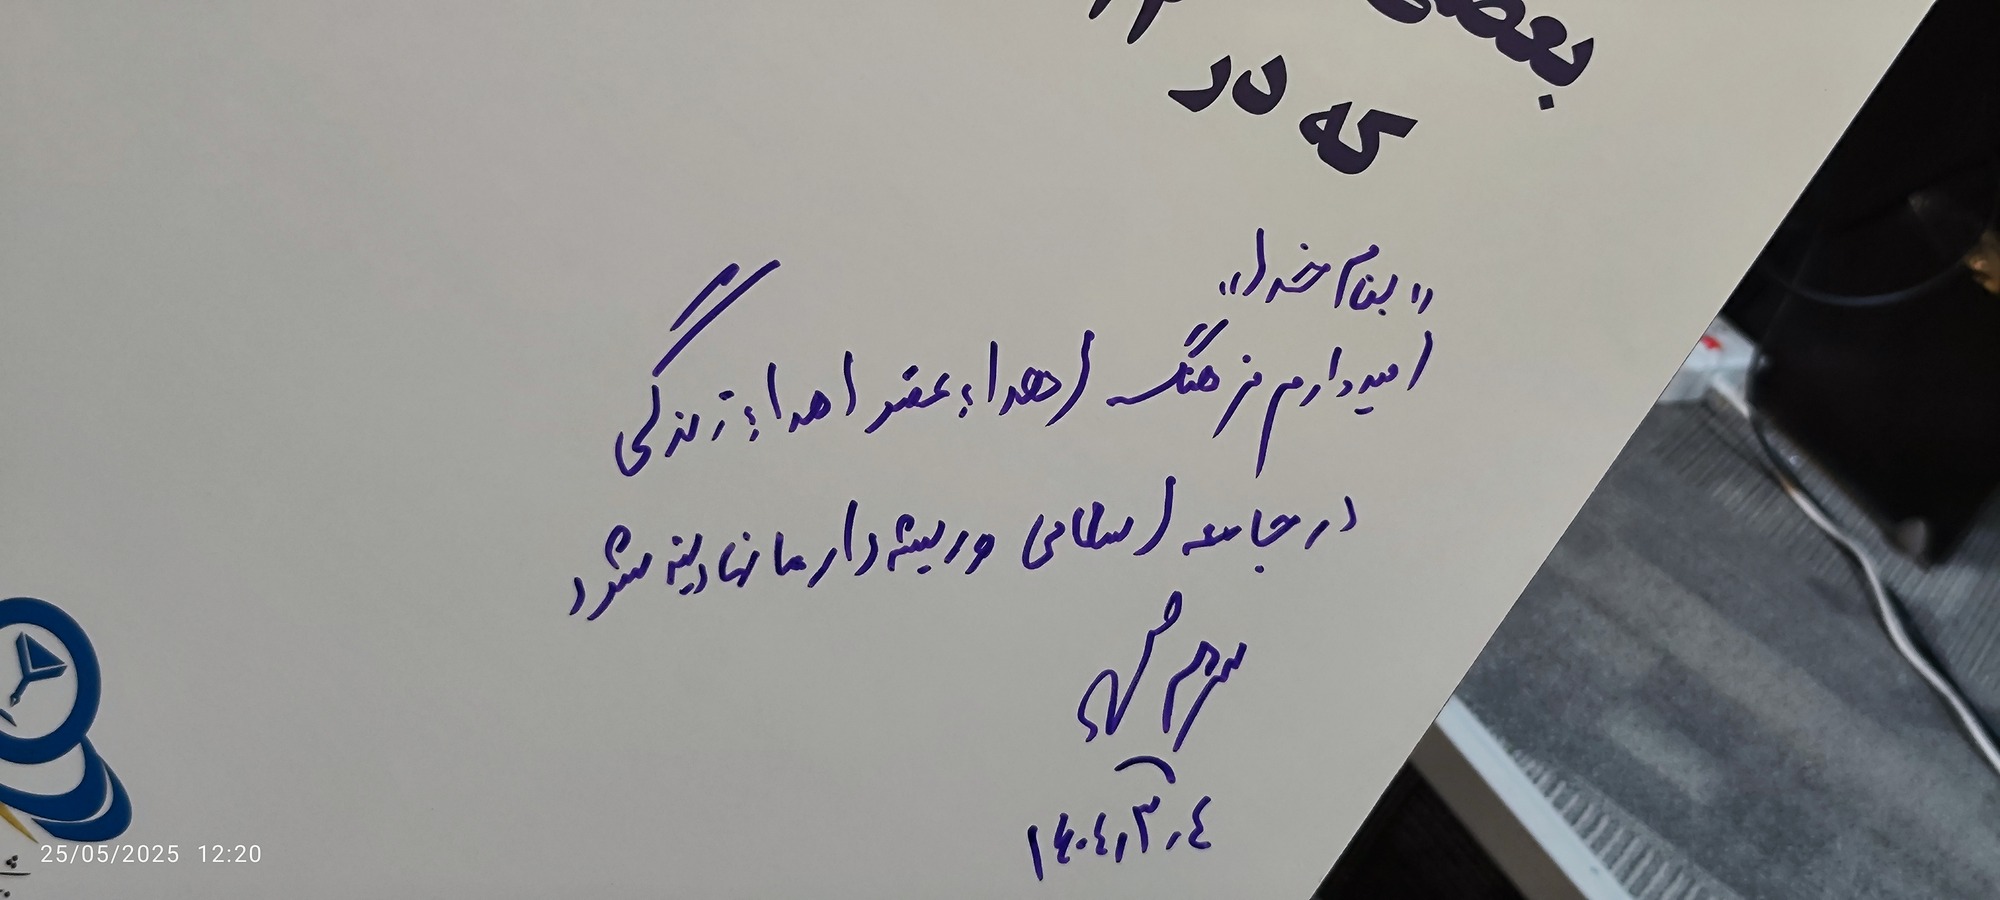 بعضی
که در
"بنام خدا"
امیددارم فرهنگ اهداء عضو اهداء زندگی
در جامعه اسلامی و ریشه دار ما نهادینه شود
۱۴۰۴,۳,۴
25/05/2025 12:20